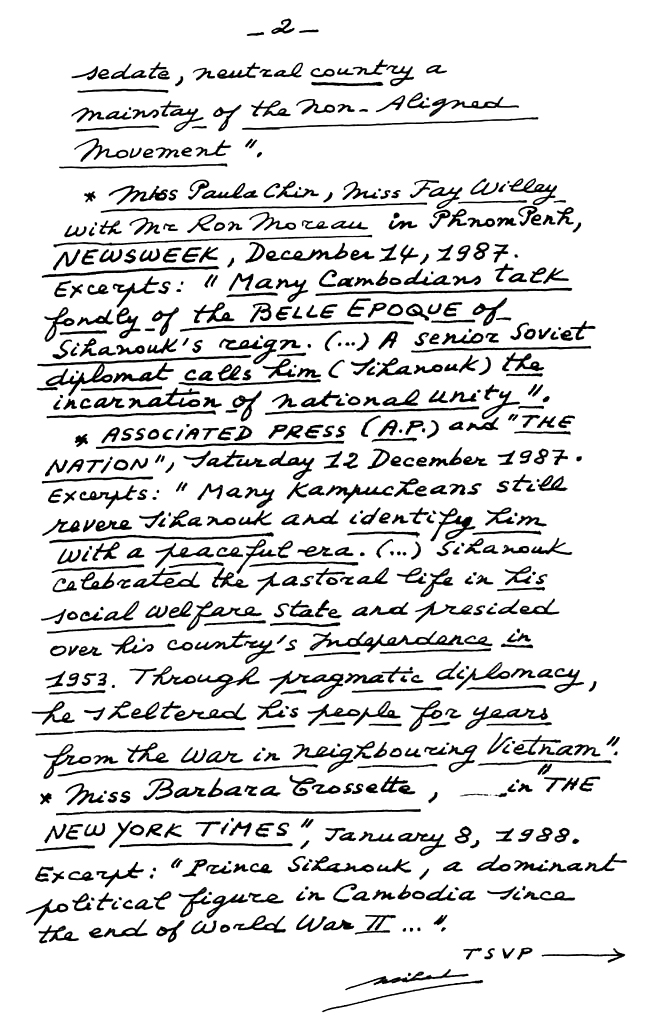 – 2 –
sedate, neutral country a
mainstay of the non-Aligned
Movement".
* Miss Paula Chin, Miss Fay Willey
with Mr Ron Moreau in Phnom Penh,
NEWSWEEK, December 14, 1987.
Excerpts: "Many Cambodians talk
fondly of the BELLE EPOQUE of
Sihanouk's reign. (...) A senior Soviet
diplomat calls him (Sihanouk) the
incarnation of national unity".
* ASSOCIATED PRESS (A.P.) and "THE
NATION", Saturday 12 December 1987.
Excerpts: "Many Kampucheans still
revere Sihanouk and identify him
with a peaceful era. (...) Sihanouk
celebrated the pastoral life in his
social welfare State and presided
over his country's Independence in
1953. Through pragmatic diplomacy,
he sheltered his people for years
from the war in neighbouring Vietnam".
* Miss Barbara Crossette, in "THE
NEW YORK TIMES", January 8, 1988.
Excerpt: "Prince Sihanouk, a dominant
political figure in Cambodia since
the end of World War II ...".
TSVP →